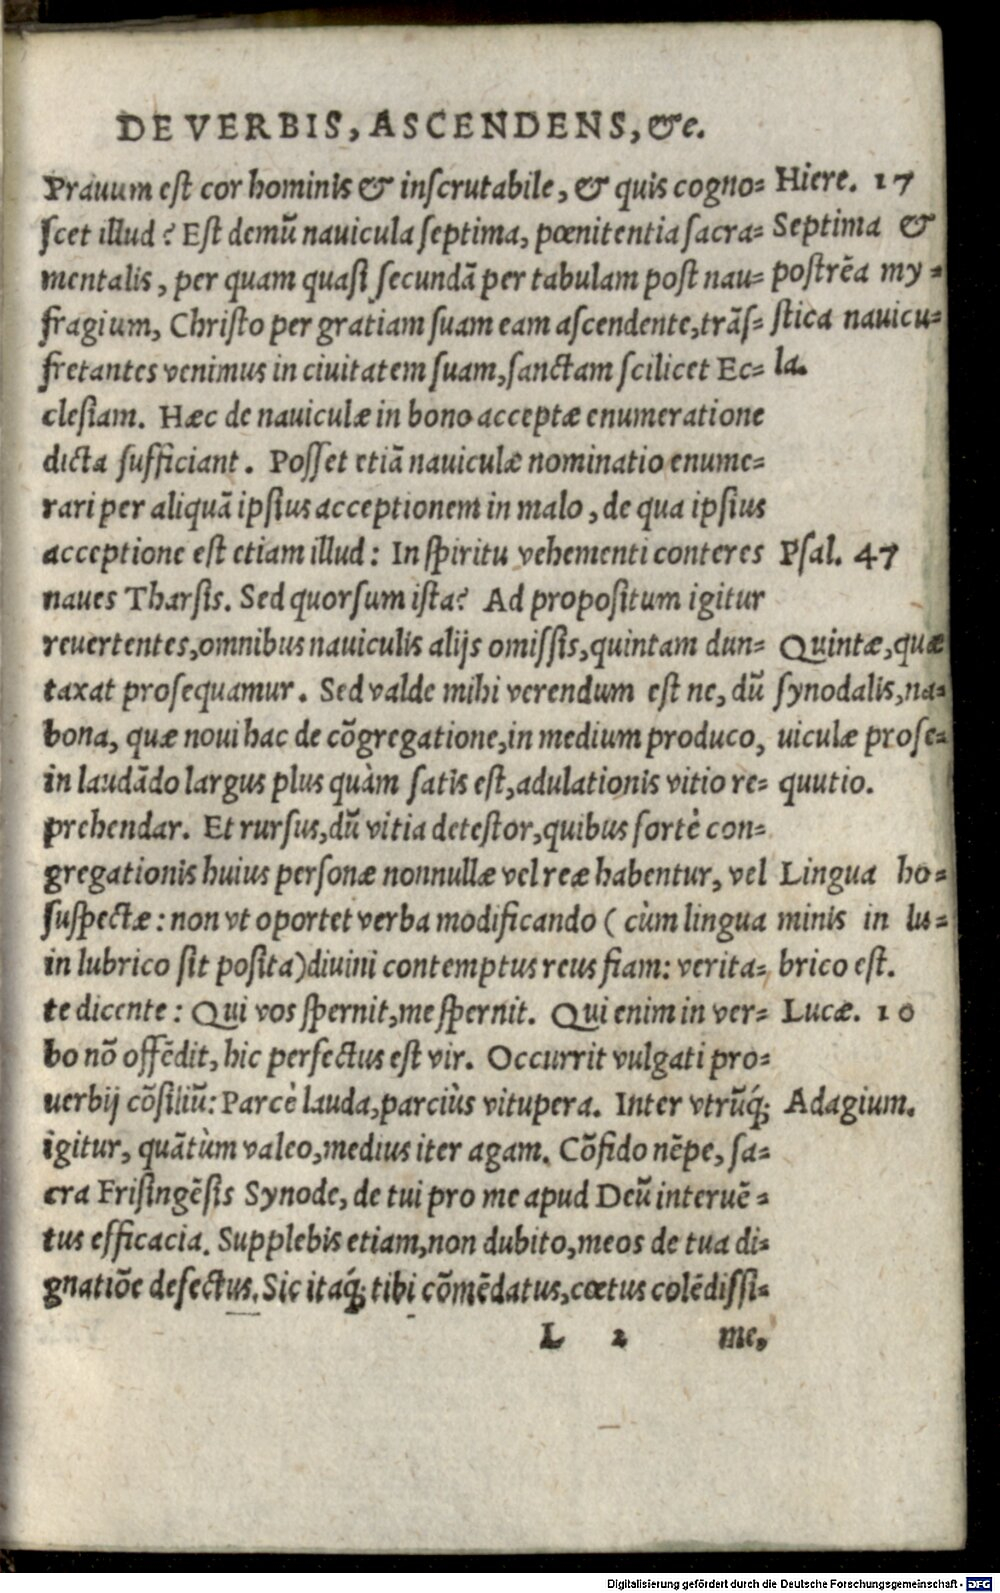 DE VERBIS, ASCENDENS, &c.
Prauum est cor hominis & inscrutabile, & quis cogno=
scet illud? Est demū nauicula septima, pœnitentia sacra=
mentalis, per quam quasi secundā per tabulam post nau=
fragium, Christo per gratiam suam eam ascendente, trās=
fretantes venimus in ciuitatem suam, sanctam scilicet Ec=
clesiam. Hæc de nauiculæ in bono acceptæ enumeratione
dicta sufficiant. Posset etiā nauiculæ nominatio enume=
rari per aliquā ipsius acceptionem in malo, de qua ipsius
acceptione est etiam illud: In spiritu vehementi conteres
naues Tharsis. Sed quorsum ista? Ad propositum igitur
reuertentes, omnibus nauiculis alijs omissis, quintam dun=
taxat prosequamur. Sed valde mihi verendum est ne, dū
bona, quæ noui hac de cōgregatione, in medium produco,
in laudādo largus plus quàm satis est, adulationis vitio re=
prehendar. Et rursus, dū vitia detestor, quibus fortè con=
gregationis huius personæ nonnullæ vel reæ habentur, vel
suspectæ: non vt oportet verba modificando (cùm lingua
in lubrico sit posita) diuini contemptus reus fiam: verita=
te dicente: Qui vos spernit, me spernit. Qui enim in ver=
bo nō offēdit, hic perfectus est vir. Occurrit vulgati pro=
uerbij cōsiliū: Parcè lauda, parciùs vitupera. Inter vtrūq́;
igitur, quātùm valeo, medius iter agam. Cōfido nēpe, sa=
cra Frisingēsis Synode, de tui pro me apud Deū interuē=
tus efficacia. Supplebis etiam, non dubito, meos de tua di=
gnatiōe defectus. Sic itaq́; tibi cōmēdatus, cœtus colēdissi=
L 2 me,
Hiere. 17
Septima &
postrēa my=
stica nauicu=
la.
Psal. 47
Quintæ, quæ
synodalis, na=
uiculæ prose=
quutio.
Lingua ho=
minis in lu=
brico est.
Lucæ. 10
Adagium.
Digitalisierung gefördert durch die Deutsche Forschungsgemeinschaft - DFG